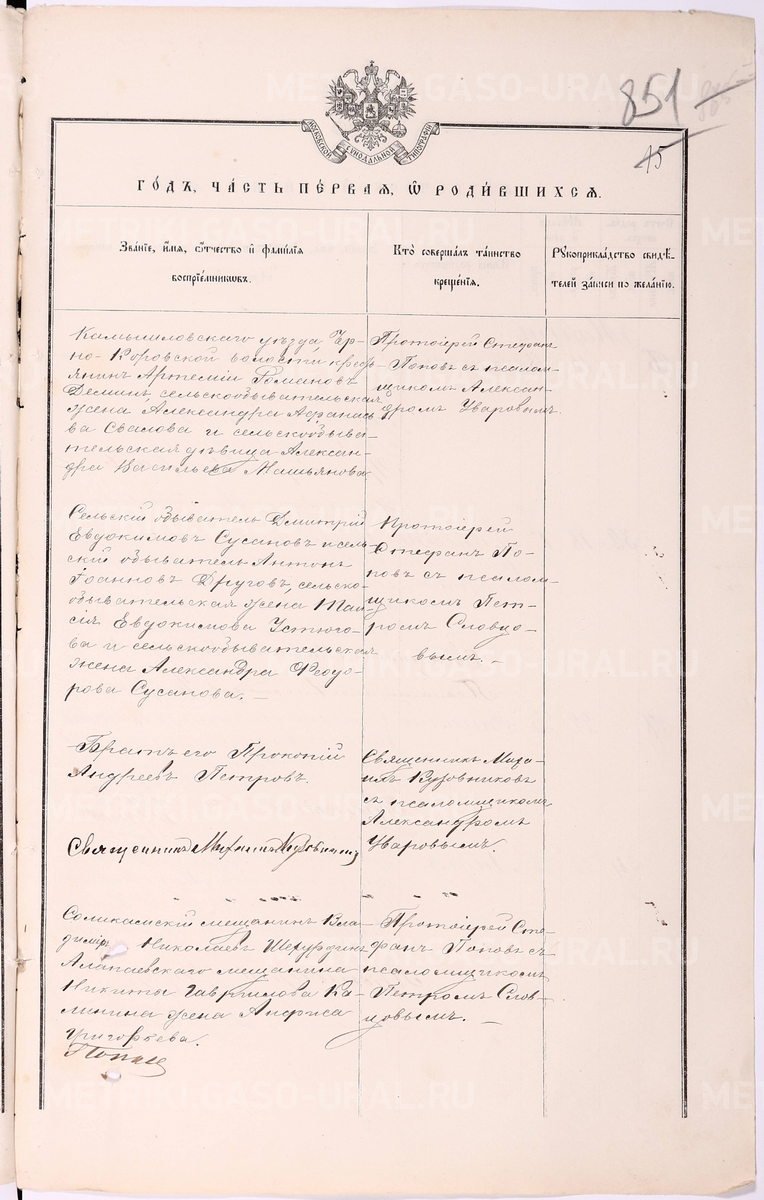 METRIKI.GASO-URAL.RU
851
15
МОСКОВСКОЙ СѴНОДАЛЬНОЙ ТИПОГРАФІИ
ГО́ДЪ, ЧА́СТЬ ПЕ́РВАЯ, Ѽ РОДИ́ВШИХСЯ.
Зва́нїе, и҆́мя, ѻ҆́тчество и҆ фами́лїя
воспрїе́мникѡвъ.
Кто̀ соверша́лъ та́инство
креще́нїя.
Рꙋкоприкла́дство свидѣ́-
телей за́писи по жела́нїю.
Камышловскаго уѣзда, Чер-
но-Коровской волости кресть-
янинъ Артемій Романовъ
Деминъ, сельскообывательская
жена Александра Аѳанась-
ва Свалова и сельскообыва-
тельская дѣвица Алексан-
дра Васильева Машьянова
Протоіерей Стефанъ
Поповъ съ псалом-
щикомъ Алексан-
дромъ Уваровымъ.
Сельскій обыватель Дмитрій
Евдокимовъ Сусановъ и сель-
скій обыватель Антонъ
Іоанновъ Друговъ, сельско-
обывательская жена Таи-
сія Евдокимова Устюго-
ва и сельскообывательская
жена Александра Ѳеодо-
рова Сусанова.
Протоіерей
Стефанъ По-
повъ съ псалом-
щикомъ Пет-
ромъ Словцо-
вымъ.
Братъ его Прокопій
Андреевъ Петровъ.
Священникъ Михаилъ
Священникъ Миха-
илъ Вудовниковъ
съ псаломщикомъ
Александромъ
Уваровымъ.
Соликамскій мещанинъ Вла-
диміръ Николаевъ Шерудинъ
Алапаевскаго мещанина
Никиты Гавріилова Ка-
минина жена Анфиса
Григорьева.
Протоіерей Сте-
фанъ Поповъ съ
псаломщикомъ
Петромъ Слов-
цовымъ.